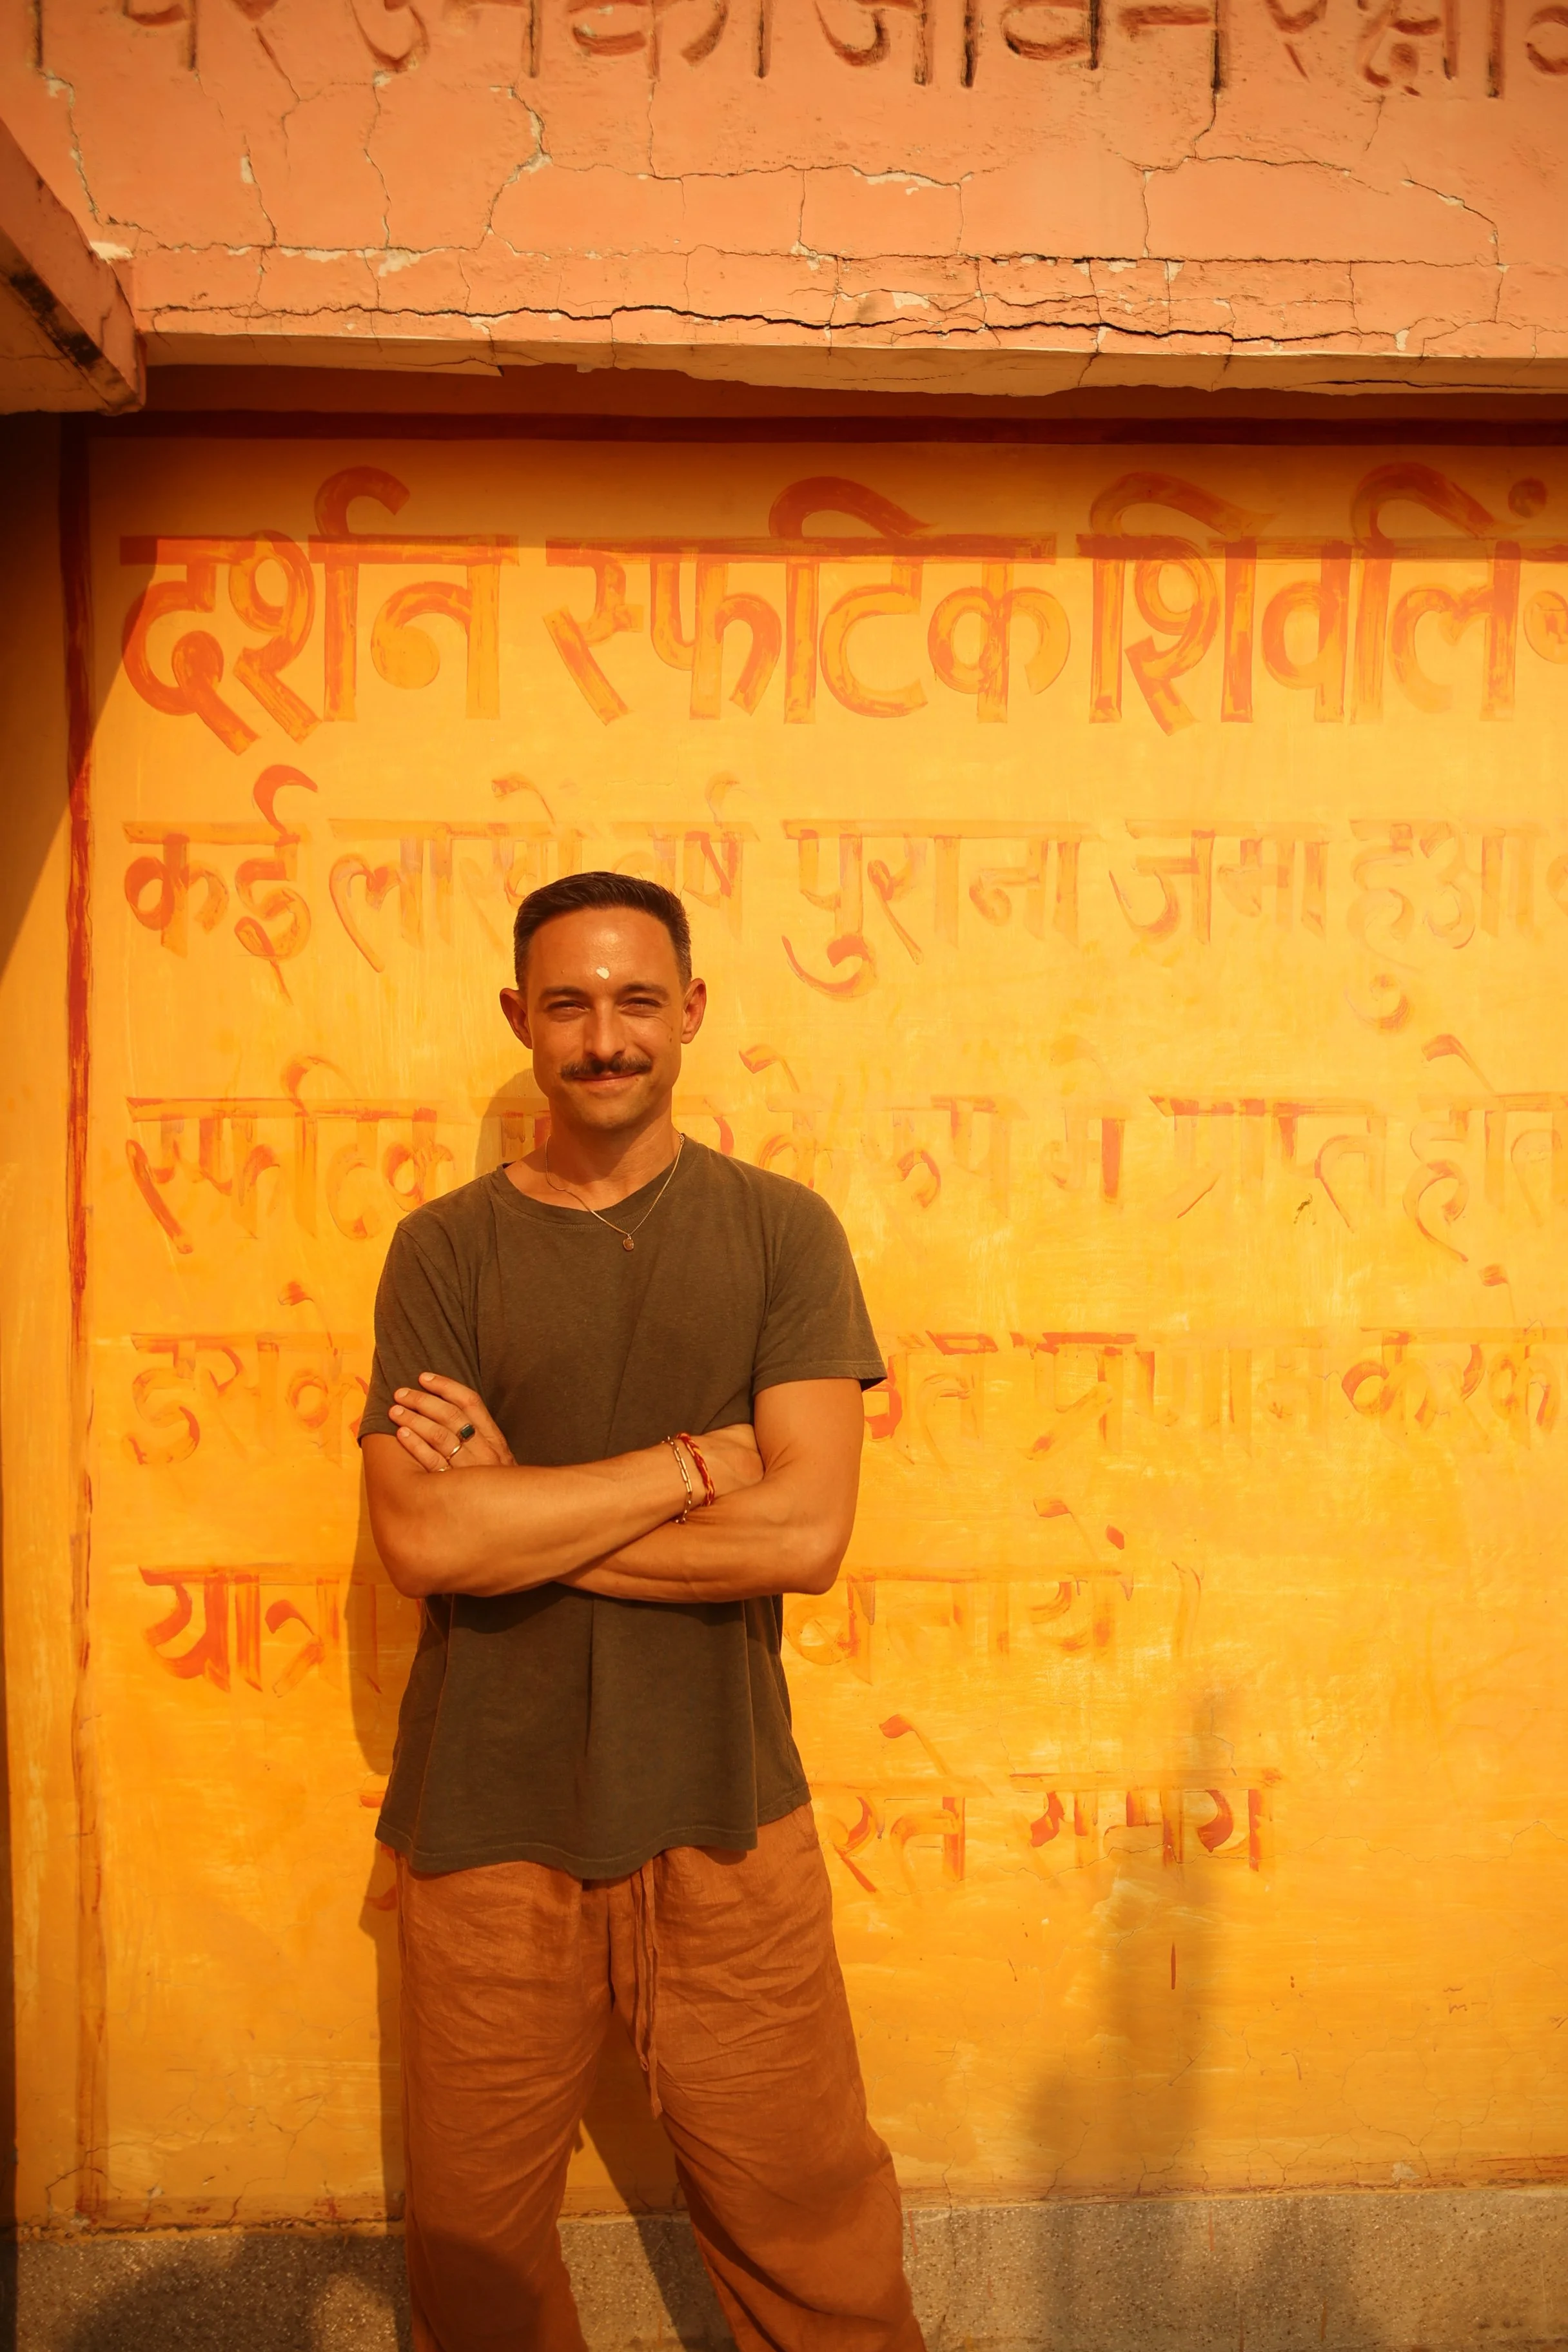 पर उनका जीवन रक्षा
दर्शन स्फटिक शिवलिं
कई लाखो वर्ष पुराना जमा हुआ
स्फटिक के रूप में प्राप्त होत
इसके प्रणाम करके
यात्रा बनायें।
रते समय